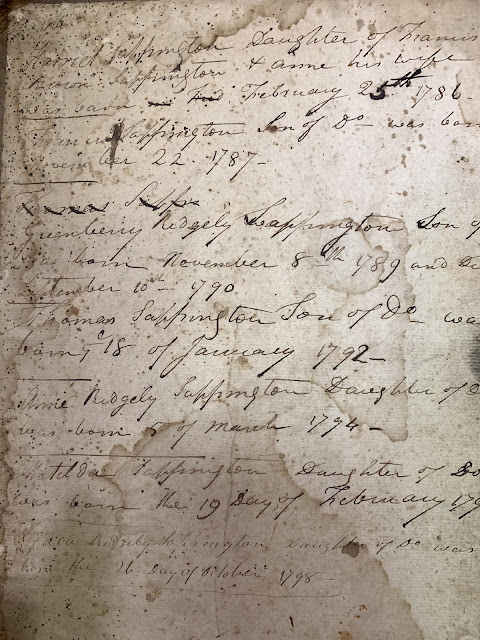 Harriet Sappington Daughter of Francis
Brown Sappington & anne his wife
was born February 25th 1786-
Francis Sappington Son of Do was born
22. 1787-
Thomas Sappin
Greenberry Ridgely Sappington Son of
was born November 8th 1789 and
September 10th 1790
Thomas Sappington Son of Do was
born ye 18 of January 1792-
Ridgely Sappington Daughter of D
was born 5 of March 1794-
Matilda Sappington Daughter of Do
was born the 19 Day of February 179
Ridgely Sappington Daughter of Do was
born the 26 Day of October 1798-